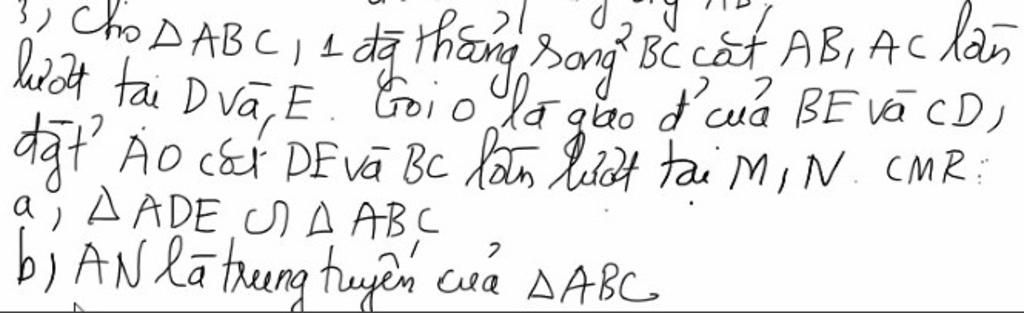 3, Cho △ABC, 1 đg thẳng song² BC cắt AB, AC lần
lượt tại D và E. Gọi O là giao đ' của BE và CD,
đgt' AO cắt DE và BC lần lượt tại M, N. CMR:
a, △ADE ∽ △ABC
b, AN là trung tuyến của △ABC